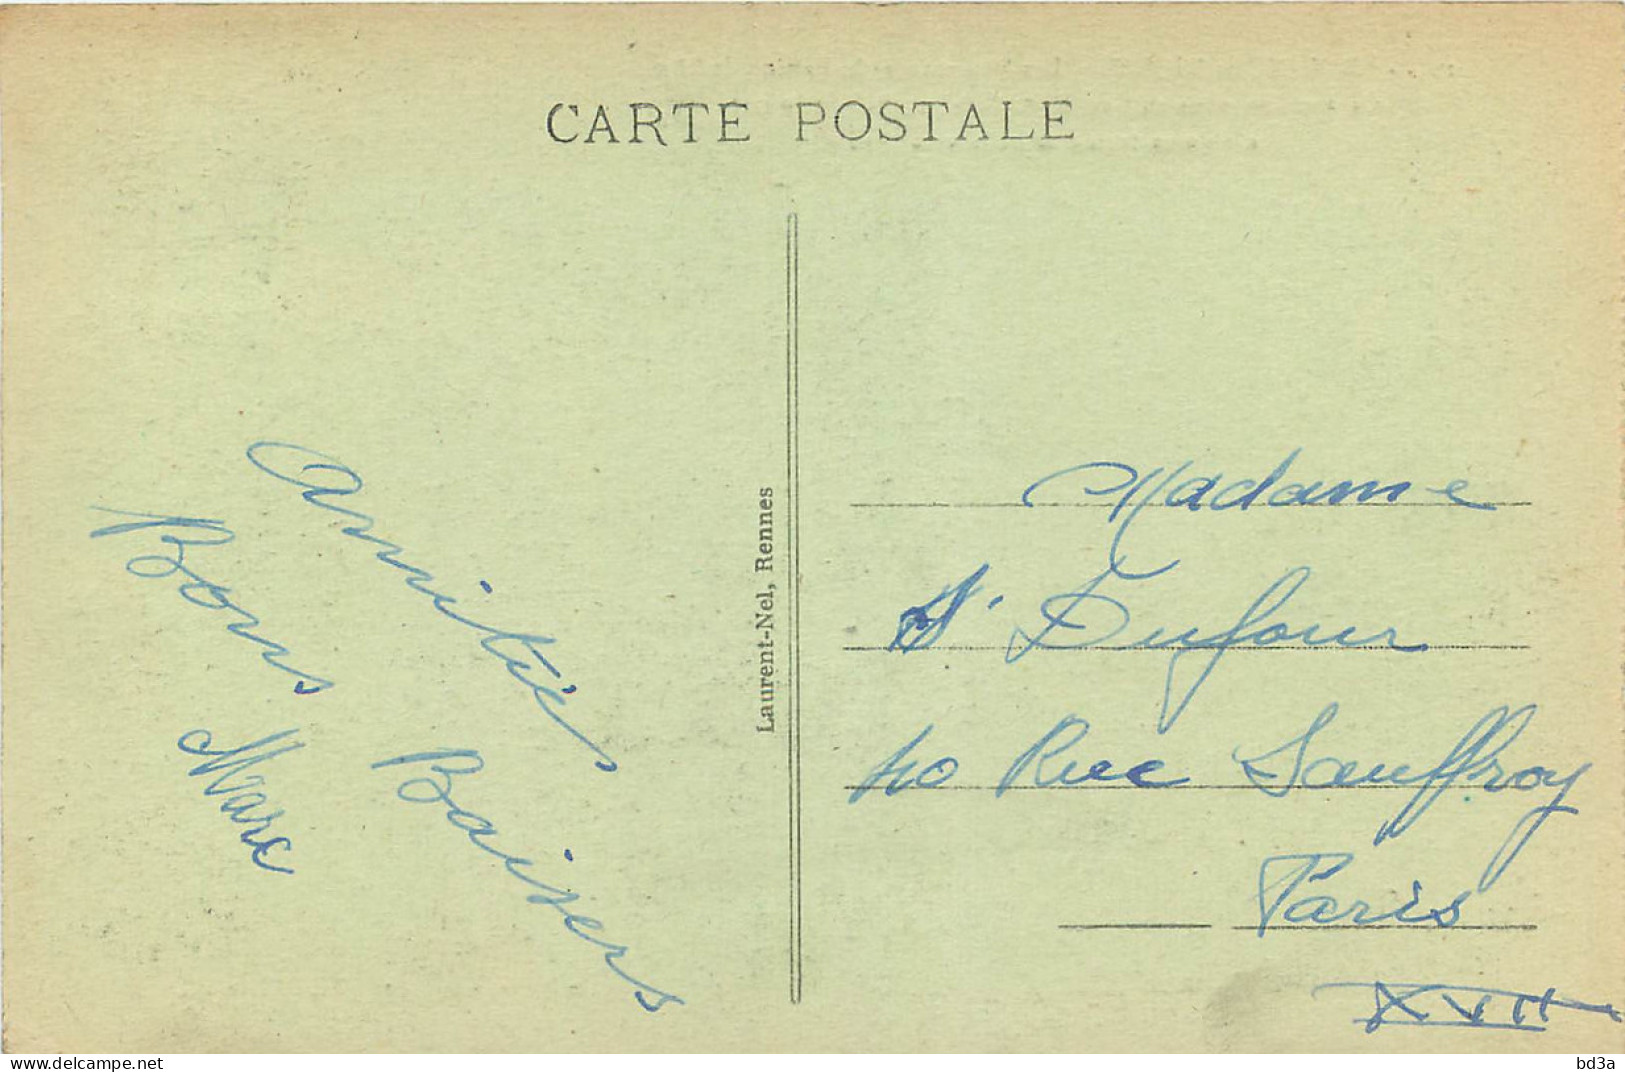 CARTE POSTALE
Amitiés
Bons Baisers
Marc
Laurent-Nel, Rennes
Madame
Dufour
40 Rue Sauffroy
Paris
XVII
www.delcampe.net
bd3a